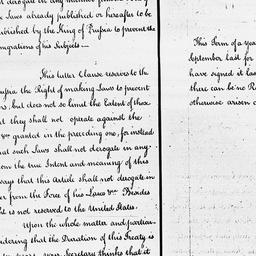 Laws already published or hereafter to be
published by the King of Prussia to prevent the
emigrations of his Subjects —
This latter Clause reserves to the
Prussia the Right of making Laws to prevent
but does not so limit the Extent of those
they shall not operate against the
granted in the preceeding one, for instead
that such Laws shall not derogate in any
from the true Intent and meaning of this
ways that this Article shall not derogate in
from the Force of his Laws &ca. Besides
is not reserved to the United States.
Upon the whole matter and particu-
considering that the Duration of this Treaty is
your Secretary thinks that it
This Term of a year
September last for
have signed it last
there can be no R
otherwise arisen